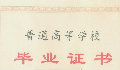 普通高等学校
毕业证书